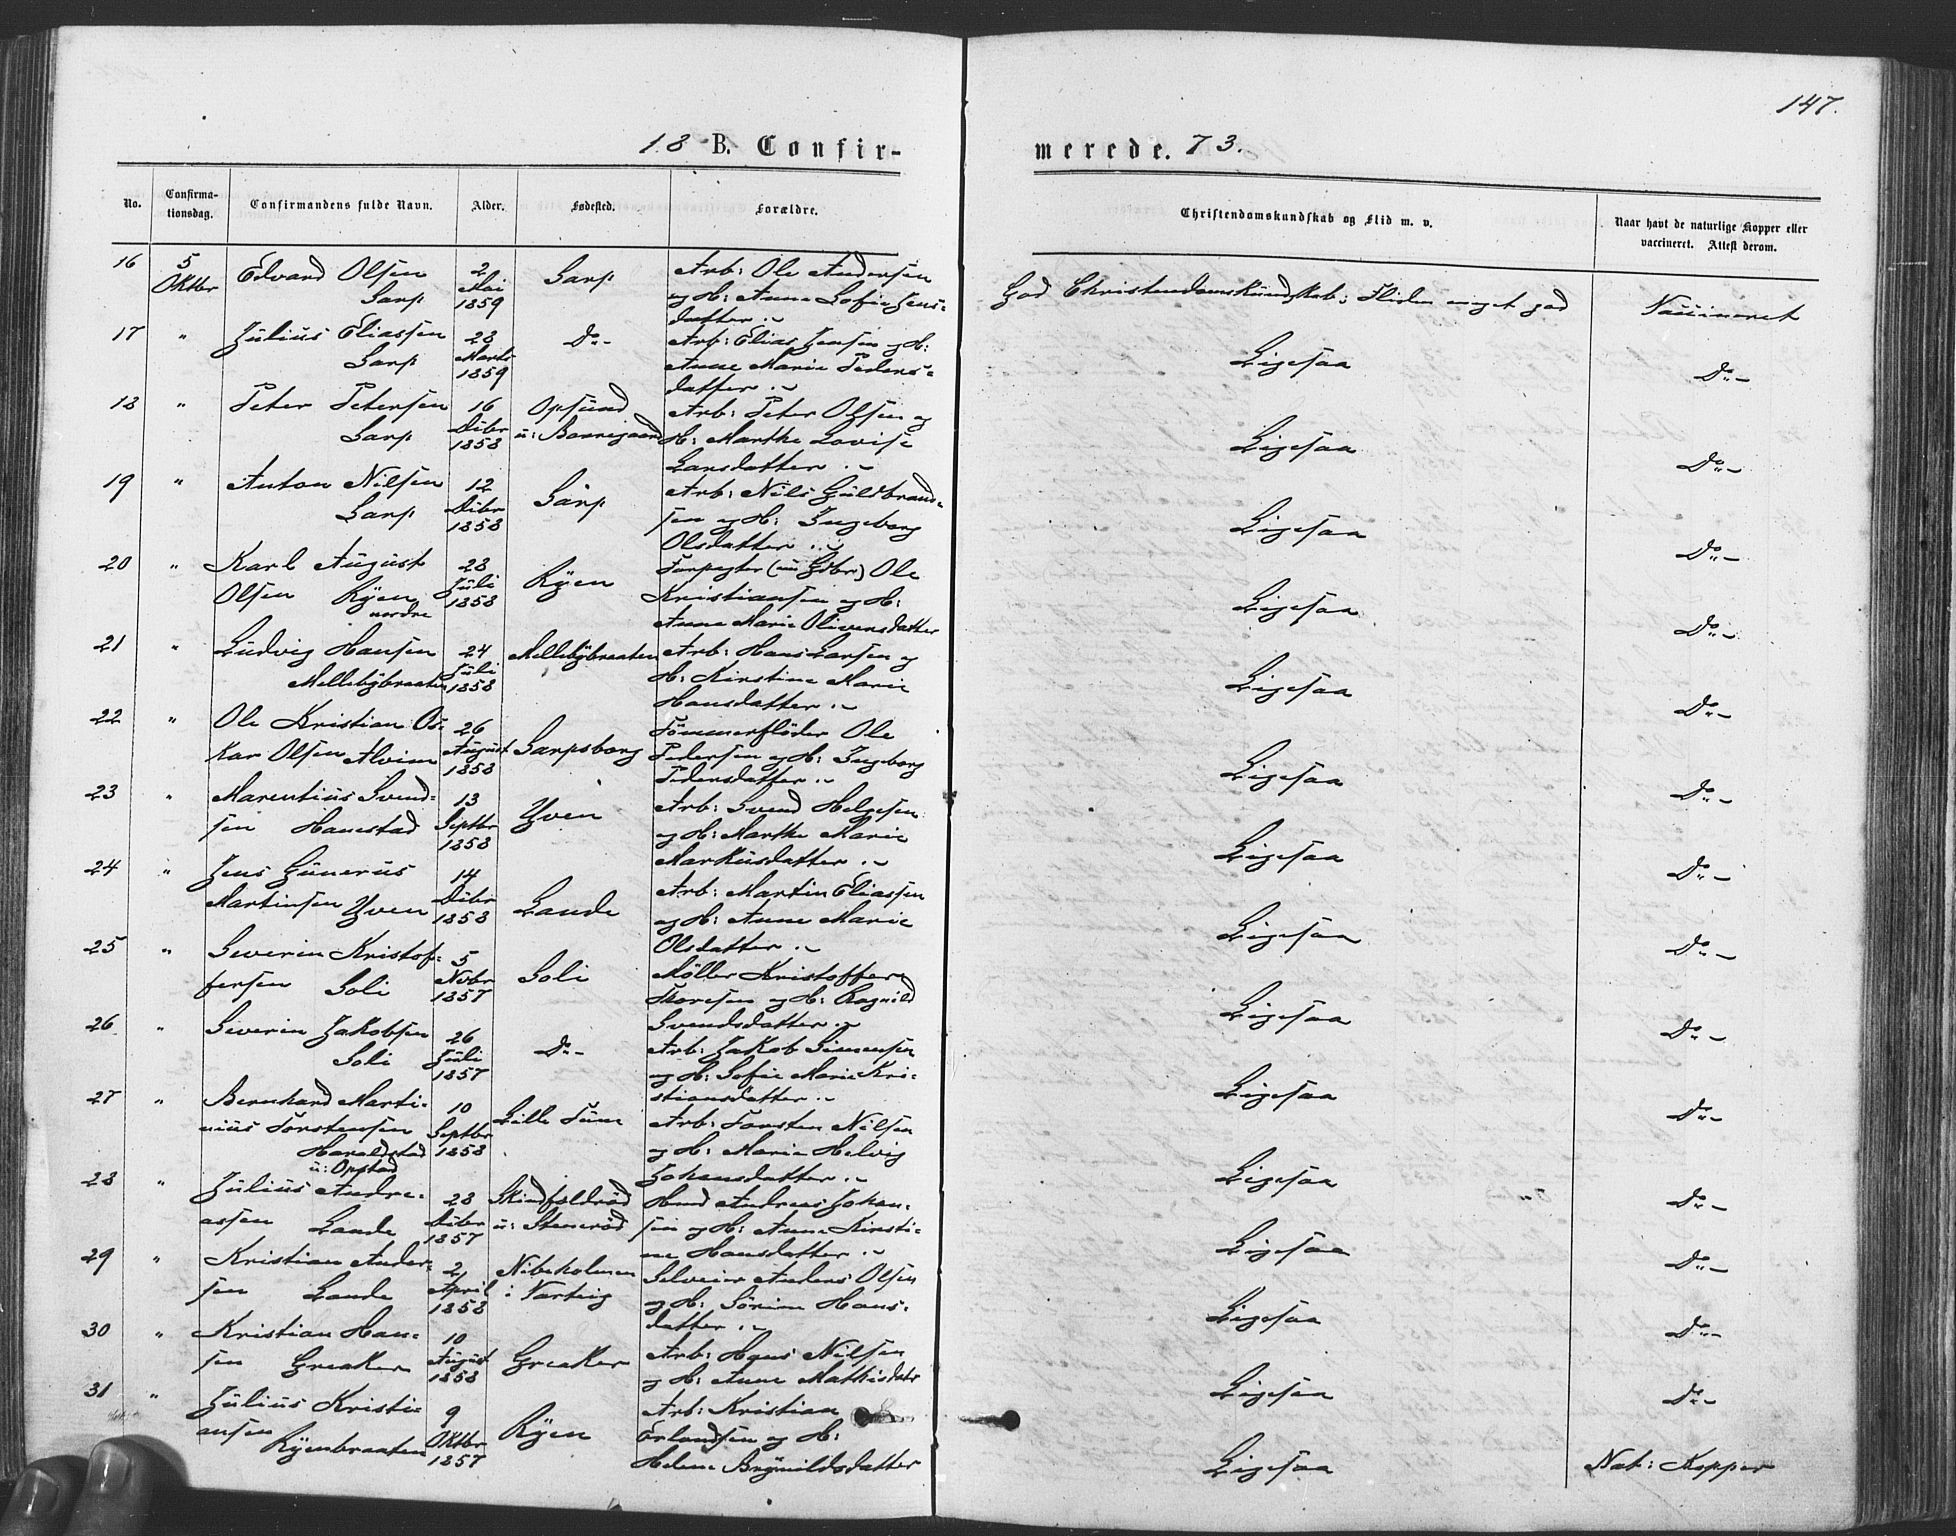 147.
18 B. Confir-
merede. 73.
No.
Confirma-
tionsdag.
Confirmandens fulde Navn.
Alder.
Fødested.
Forældre.
Christendomskundskab og Flid m. v.
Naar havt de naturlige Kopper eller
vaccineret. Attest derom.
16 5 Oktbr
Edvard Olsen
Sarp
2 Mai 1859
Sarp
Arb: Ole Andersen
og H: Anne Sofie Jens-
datter
God Christendomskundskab; Fliden meget god
Vaccineret
17 "
Julius Eliassen
Sarp
28 Marts 1859
Do-
Arb: Elias Jensen og H:
Anne Marie Peders-
datter
Ligesaa
Do-
18 "
Peter Petersen
Sarp
16 Dcbr 1858
Opsund
u: Borregaard
Arb: Peter Olsen og
H: Marthe Lovise
Larsdatter
Ligesaa
Do-
19 "
Anton Nilsen
Sarp
12 Dcbr 1858
Sarp
Arb: Nils Guldbrand-
sen og H: Ingeborg
Olsdatter
Ligesaa
Do-
20 "
Karl August
Olsen Ryen
nordre
28 Juli 1858
Ryen
Forpagter (nu Gdbr) Ole
Kristiansen og H:
Anne Marie Oliversdatter
Ligesaa
Do-
21 "
Ludvig Hansen
Mellebybraaten
24 Juli 1858
Mellebybraaten
Arb: Hans Larsen og
H: Kirstine Marie
Hansdatter
Ligesaa
Do-
22 "
Ole Kristian Os-
kar Olsen Alvim
26 August 1858
Sarpsborg
Tømmerfløder Ole
Pedersen og H: Ingeborg
Pedersdatter
Ligesaa
Do-
23 "
Marentius Svend-
sen Hanestad
13 Septbr 1858
Yven
Arb: Svend Helgesen
og H: Marthe Marie
Markusdatter
Ligesaa
Do-
24 "
Jens Gunerus
Martinsen Yven
14 Dcbr 1858
Lande
Arb: Martin Eliassen
og H: Anne Marie
Olsdatter
Ligesaa
Do-
25 "
Severin Kristof-
fersen Soli
5 Novbr 1857
Soli
Møller Kristoffer
Thoresen og H: Ragnild
Svendsdatter
Ligesaa
Do-
26 "
Severin Jakobsen
Soli
26 Juli 1857
Do-
Arb: Jakob Simensen
og H: Sofie Marie Kri-
stiansdatter
Ligesaa
Do-
27 "
Bernhard Marti-
nius Torstensen
Haraldstad
u: Opstad
10 Septbr 1858
Lille Tune
Arb: Torsten Nilsen
og H: Marie Helvig
Johansdatter
Ligesaa
Do-
28 "
Julius Andre-
assen Lande
28 Dcbr 1857
Skindfeldrød
u: Stenerød
Hmd Andreas Johan-
sen og H: Anne Kirsti-
ne Hansdatter
Ligesaa
Do-
29 "
Kristian Ander-
sen Lande
2 April 1858
Nibeholmen
i Varteig
Selveier Anders Olsen
og H: Sørine Hans-
datter
Ligesaa
Do-
30 "
Kristian Han-
sen Greaker
10 August 1858
Greaker
Arb: Hans Nilsen
og H: Anne Mathisdatr
Ligesaa
Do-
31 "
Julius Kristi-
ansen
Ryenbraaten
9 Oktbr 1857
Ryen
Arb: Kristian
Erlandsen og H:
Helene Brynildsdatter
Ligesaa
Nat: Kopper